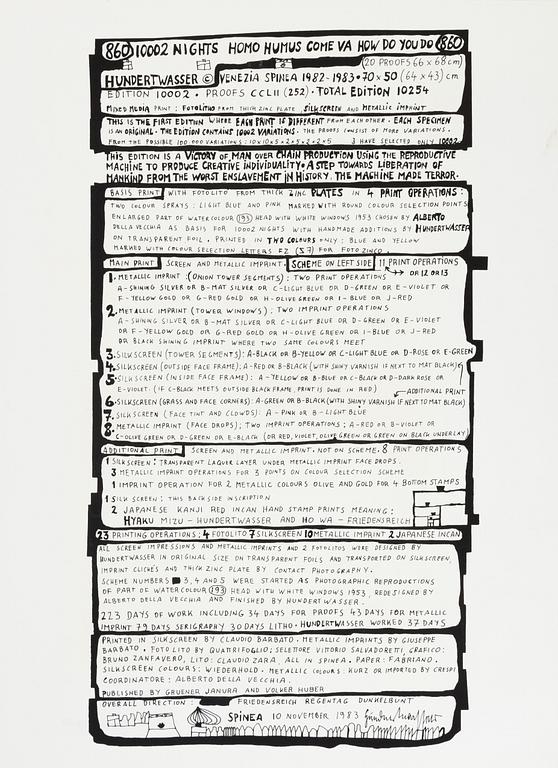 860 10002 NIGHTS HOMO HUMUS COME VA HOW DO YOU DO 860
(20 PROOFS 66 x 68 cm)
HUNDERTWASSER © VENEZIA SPINEA 1982-1983 • 70 x 50 (64 x 43) cm
EDITION 10002 • PROOFS CCLII (252) • TOTAL EDITION 10254
MIXED MEDIA PRINT: FOTOLITHO FROM THICK ZINC PLATE SILKSCREEN AND METALLIC IMPRINT
THIS IS THE FIRST EDITION WHERE EACH PRINT IS DIFFERENT FROM EACH OTHER. EACH SPECIMEN
IS AN ORIGINAL. THE EDITION CONTAINS 10002 VARIATIONS. THE PROOFS CONSIST OF MORE VARIATIONS.
FROM THE POSSIBLE 100 000 VARIATIONS: 10x10x5x2x5x2x2x5 I HAVE SELECTED ONLY 10002
THIS EDITION IS A VICTORY OF MAN OVER CHAIN PRODUCTION USING THE REPRODUCTIVE
MACHINE TO PRODUCE CREATIVE INDIVIDUALITY. A STEP TOWARDS LIBERATION OF
MANKIND FROM THE WORST ENSLAVEMENT IN HISTORY. THE MACHINE MADE TERROR.
BASIS PRINT WITH FOTOLITO FROM THICK ZINC PLATES IN 4 PRINT OPERATIONS:
TWO COLOUR SPRAYS: LIGHT BLUE AND PINK MARKED WITH ROUND COLOUR SELECTION POINTS
ENLARGED PART OF WATERCOLOUR (193) HEAD WITH WHITE WINDOWS 1953 CHOSEN BY ALBERTO
DELLA VECCHIA AS BASIS FOR 10002 NIGHTS WITH HANDMADE ADDITIONS BY HUNDERTWASSER
ON TRANSPARENT FOIL. PRINTED IN TWO COLOURS ONLY: BLUE AND YELLOW
MARKED WITH COLOUR SELECTION LETTERS FZ (57) FOR FOTOZINCO.
MAIN PRINT SCREEN AND METALLIC IMPRINT. SCHEME ON LEFT SIDE 11 PRINT OPERATIONS
OR 12 OR 13
1. METALLIC IMPRINT: (ONION TOWER SEGMENTS): TWO PRINT OPERATIONS
A-SHINING SILVER OR B-MAT SILVER OR C-LIGHT BLUE OR D-GREEN OR E-VIOLET OR
F-YELLOW GOLD OR G-RED GOLD OR H-OLIVE GREEN OR I-BLUE OR J-RED
2. METALLIC IMPRINT (TOWER WINDOWS): TWO IMPRINT OPERATIONS
A-SHINING SILVER OR B-MAT SILVER OR C-LIGHT BLUE OR D-GREEN OR E-VIOLET
OR F-YELLOW GOLD OR G-RED GOLD OR H-OLIVE GREEN OR I-BLUE OR J-RED
OR BLACK SHINING IMPRINT WHERE TWO SAME COLOURS MEET
3. SILKSCREEN (TOWER SEGMENTS): A-BLACK OR B-YELLOW OR C-LIGHT BLUE OR D-ROSE OR E-GREEN
4. SILKSCREEN (OUTSIDE FACE FRAME): A-RED OR B-BLACK (WITH SHINY VARNISH IF NEXT TO MAT BLACK)
5. SILKSCREEN (INSIDE FACE FRAME): A-YELLOW OR B-BLUE OR C-BLACK OR D-DARK ROSE OR
E-VIOLET. (IF C-BLACK MEETS OUTSIDE BLACK FRAME, PRINT IS DONE IN RED) ADDITIONAL PRINT
6. SILKSCREEN (GRASS AND FACE CORNERS): A-GREEN OR B-BLACK (WITH SHINY VARNISH IF NEXT TO MAT BLACK)
7. SILKSCREEN (FACE TINT AND CLOWDS): A-PINK OR B-LIGHT BLUE
8. METALLIC IMPRINT (FACE DROPS); TWO IMPRINT OPERATIONS; A-RED OR B-VIOLET OR
C-OLIVE GREEN OR D-GREEN OR E-BLACK (OR RED, VIOLET, OLIVE GREEN OR GREEN ON BLACK UNDERLAY)
ADDITIONAL PRINT SCREEN AND METALLIC IMPRINT. NOT ON SCHEME. 8 PRINT OPERATIONS
1 SILKSCREEN: TRANSPARENT LAQUER LAYER UNDER METALLIC IMPRINT FACE DROPS.
3 METALLIC IMPRINT OPERATIONS FOR 3 POINTS ON COLOUR SELECTION SCHEME
1 IMPRINT OPERATION FOR 2 METALLIC COLOURS OLIVE AND GOLD FOR 4 BOTTOM STAMPS
1 SILK SCREEN: THIS BACKSIDE INSCRIPTION
2 JAPANESE KANJI RED INCAN HAND STAMP PRINTS MEANING:
HYAKU MIZU - HUNDERTWASSER AND HO WA - FRIEDENSREICH
23 PRINTING OPERATIONS; 4 FOTOLITO 7 SILKSCREEN 10 METALLIC IMPRINT 2 JAPANESE INCAN
ALL SCREEN IMPRESSIONS AND METALLIC IMPRINTS AND 2 FOTOLITOS WERE DESIGNED BY
HUNDERTWASSER IN ORIGINAL SIZE ON TRANSPARENT FOILS AND TRANSPORTED ON SILKSCREEN,
IMPRINT CLICHÉS AND THICK ZINC PLATE BY CONTACT PHOTOGRAPHY.
SCHEME NUMBERS 3, 4 AND 5 WERE STARTED AS PHOTOGRAPHIC REPRODUCTIONS
OF PART OF WATERCOLOUR (193) HEAD WITH WHITE WINDOWS 1953, REDESIGNED BY
ALBERTO DELLA VECCHIA AND FINISHED BY HUNDERTWASSER.
223 DAYS OF WORK INCLUDING 34 DAYS FOR PROOFS 43 DAYS FOR METALLIC
IMPRINT 79 DAYS SERIGRAPHY 30 DAYS LITHO. HUNDERTWASSER WORKED 37 DAYS
PRINTED IN SILKSCREEN BY CLAUDIO BARBATO. METALLIC IMPRINTS BY GIUSEPPE
BARBATO. FOTOLITO BY QUATRIFOGLIO; SELETTORE VITTORIO SALVADORETTI, GRAFICO:
BRUNO ZANFAVERO, LITO: CLAUDIO ZARA, ALL IN SPINEA. PAPER: FABRIANO.
SILKSCREEN COLOURS: WIEDERHOLD. METALLIC COLOURS: KURZ OR IMPORTED BY CRESPI
COORDINATORE: ALBERTO DELLA VECCHIA.
PUBLISHED BY GRUENER JANURA AND VOLKER HUBER
OVERALL DIRECTION: FRIEDENSREICH REGENTAG DUNKELBUNT
SPINEA 10 NOVEMBER 1983 Hundertwasser